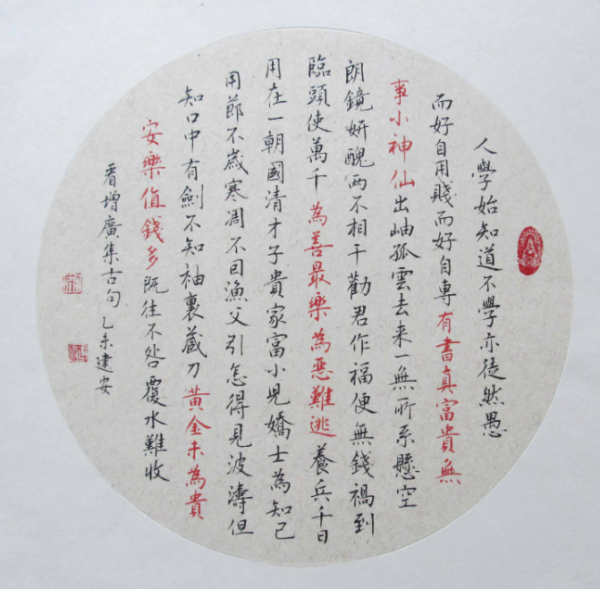 人學始知道不學亦徒然愚
而好自用賤而好自專有書真富貴無
事小神仙出岫孤雲去来一無所系懸空
朗鏡妍醜两不相干勸君作福便無錢禍到
臨頭使萬千為善最樂為惡難逃養兵千日
用在一朝國清才子貴家富小兒嬌士為知己
用節不歲寒凋不因漁父引怎得見波濤但
知口中有劍不知袖裏藏刀黃金未為貴
安樂值錢多既往不咎覆水難收
看增廣集古句乙未建安